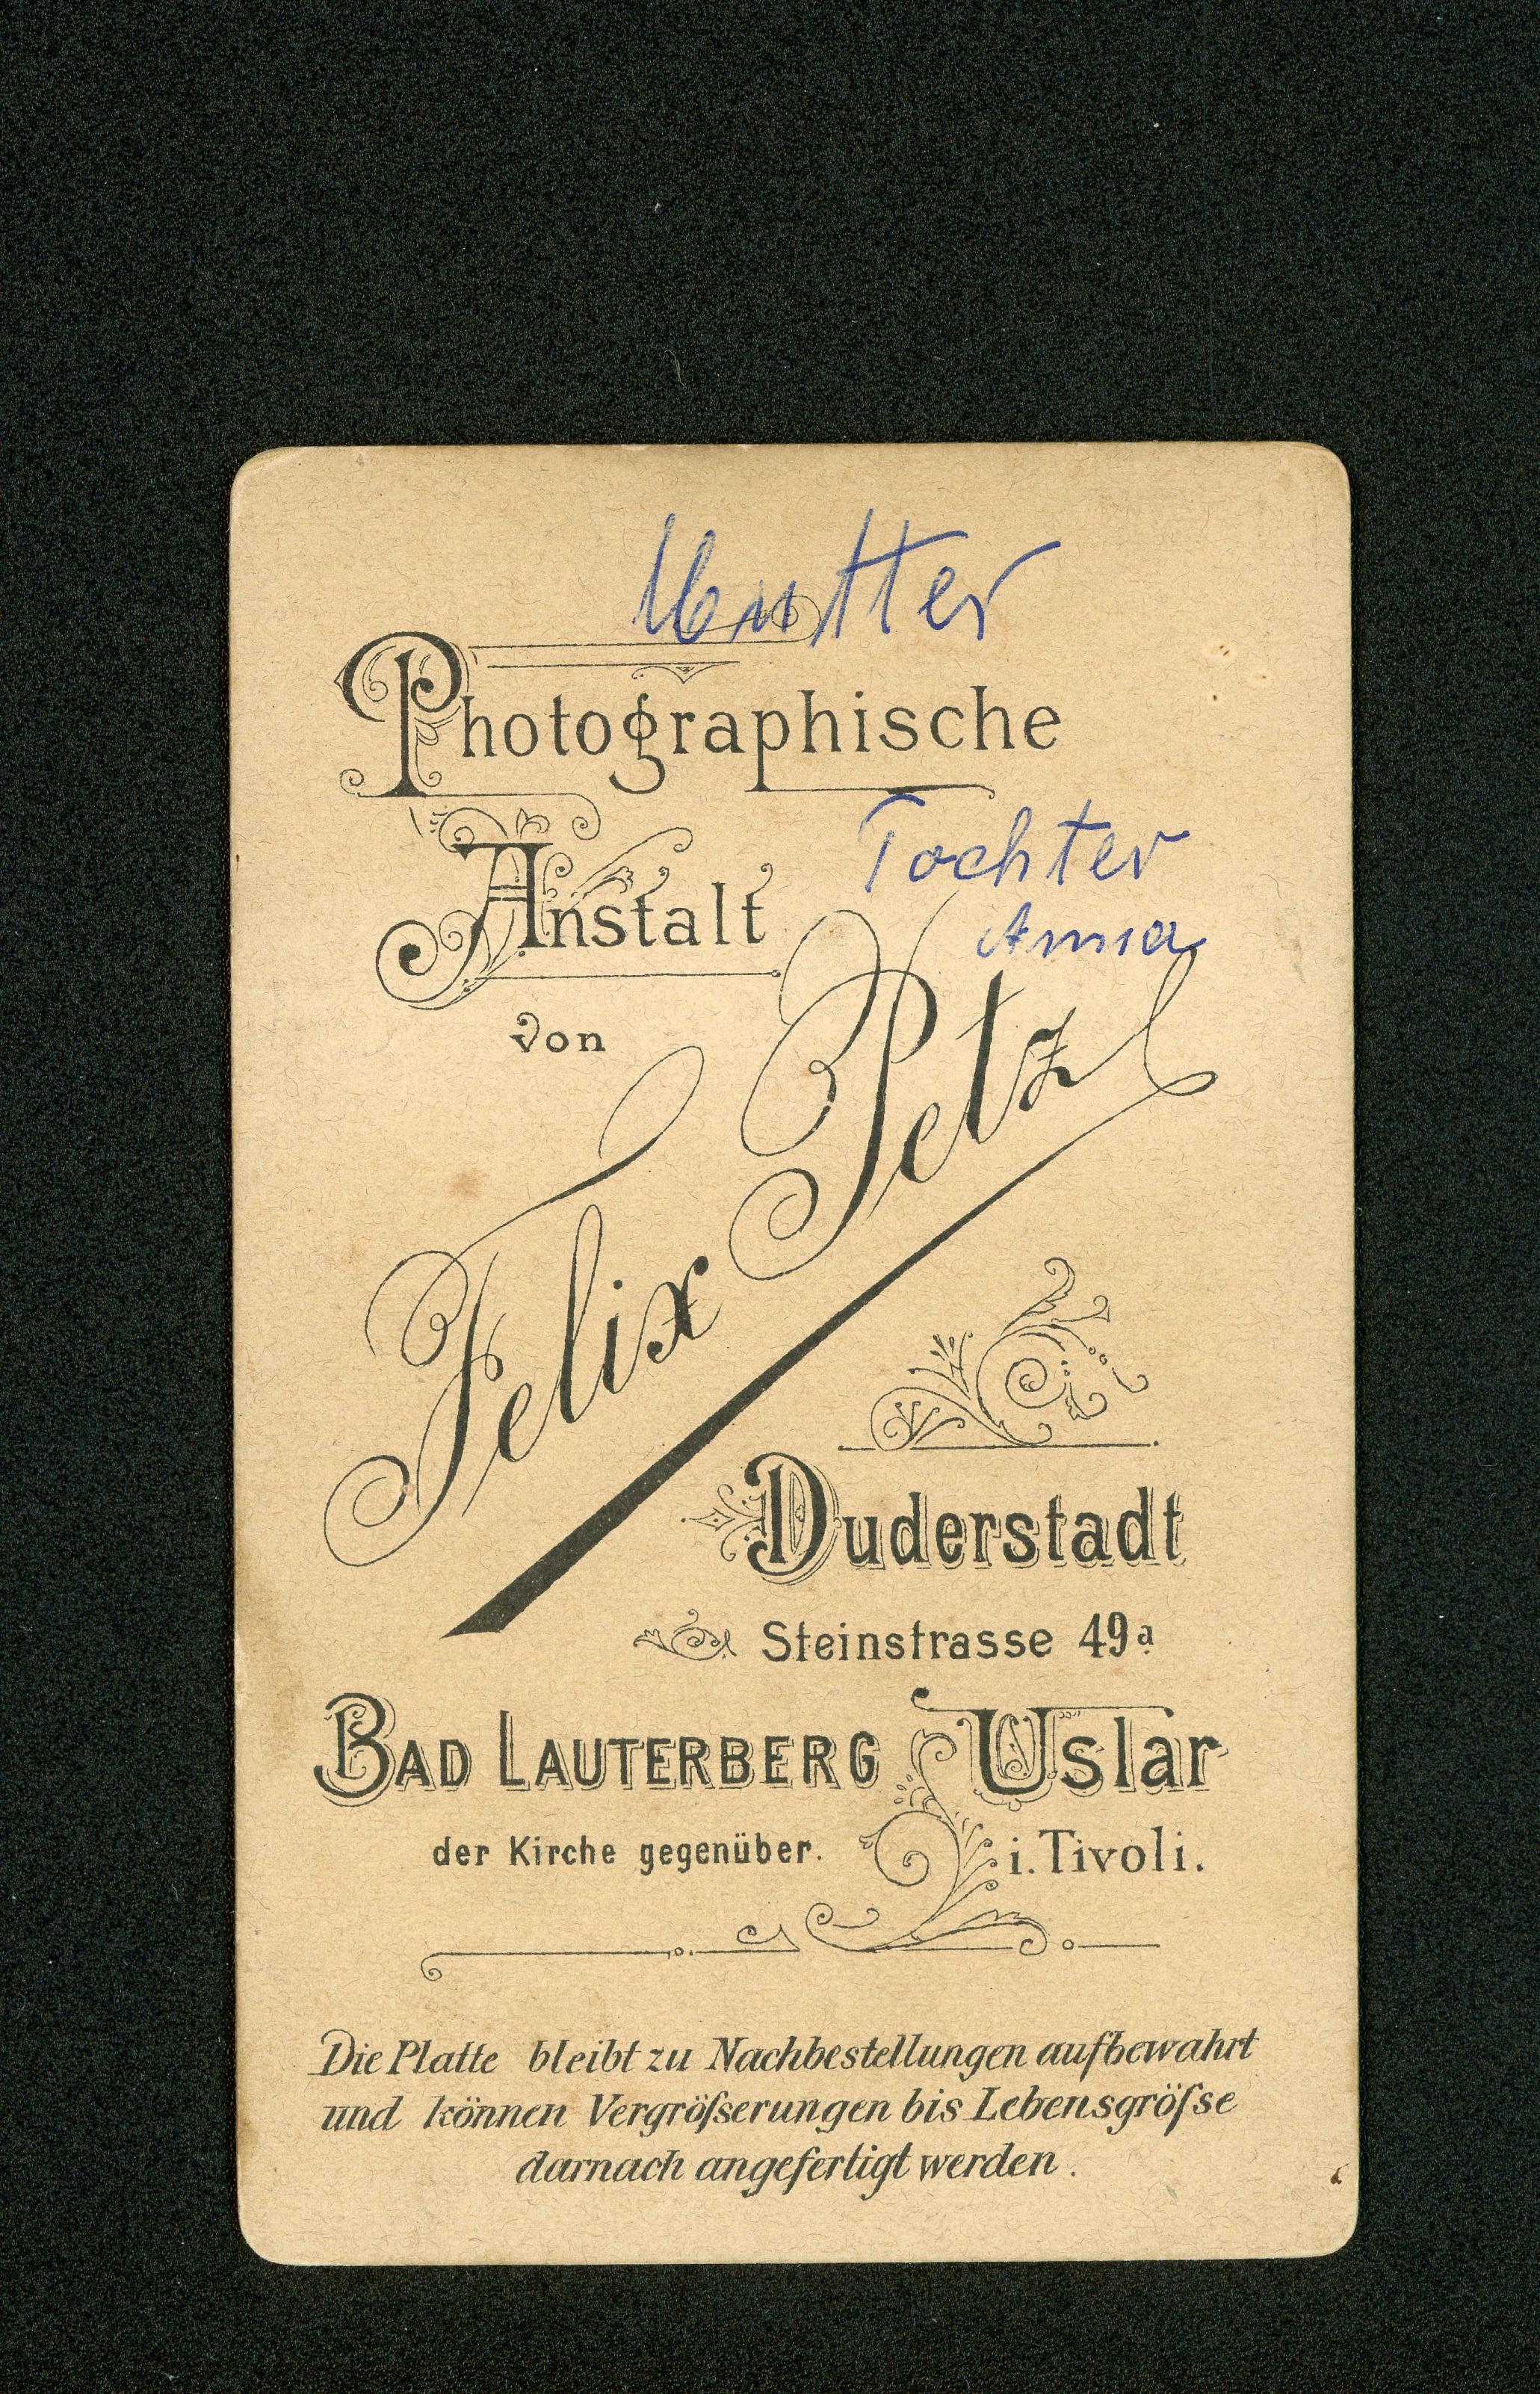 Mutter
Photographische
Tochter
Anstalt
Anna
von
Felix Petz
Duderstadt
Steinstrasse 49a
Bad Lauterberg Uslar
der Kirche gegenüber. i. Tivoli.
Die Platte bleibt zu Nachbestellungen aufbewahrt
und können Vergröſserungen bis Lebensgröſse
darnach angefertigt werden.